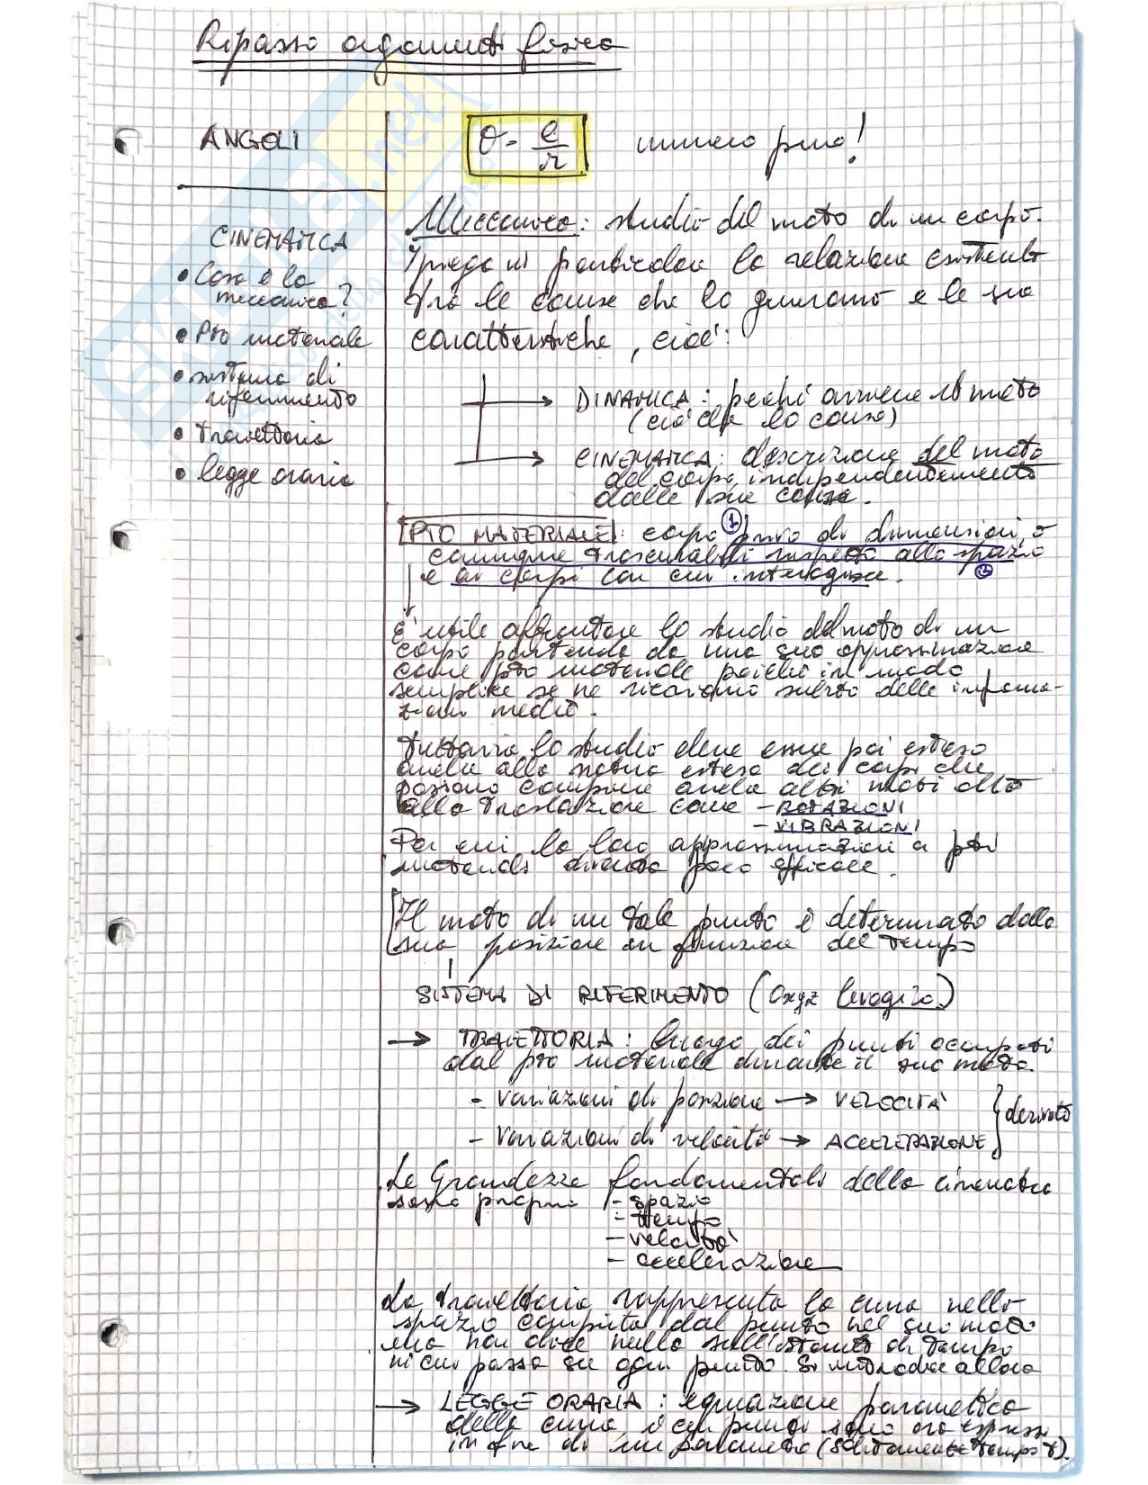 Ripasso argomenti fisica
ANGOLI
θ = e/r numero puro!
CINEMATICA
• Cosa è la
meccanica?
• Pto materiale
• sistema di
riferimento
• traiettoria
• legge oraria
Meccanica: studio del moto di un corpo.
Spiega in particolare la relazione esistente
tra le cause che lo generano e le sue
caratteristiche, cioè:
DINAMICA: perché avviene il moto
(ciò che lo causa)
CINEMATICA: descrizione del moto
del corpo indipendentemente
dalle sue cause.
PTO MATERIALE: corpo ① privo di dimensioni, o
comunque trascurabili rispetto allo spazio
e ai corpi con cui interagisce. ②
E' utile affrontare lo studio del moto di un
corpo partendo da una sua approssimazione
come pto materiale poiché in modo
semplice se ne ricavano subito delle informa-
zioni medie.
Tuttavia lo studio deve essere poi esteso
anche alla natura estesa dei corpi che
possono compiere anche altri moti oltre
alla traslazione come - ROTAZIONI
- VIBRAZIONI
Per cui la loro approssimazione a pti
materiali diventa poco efficace.
Il moto di un tale punto è determinato dalla
sua posizione in funzione del tempo
SISTEMA DI RIFERIMENTO (Oxyz levogiro)
→ TRAIETTORIA: luogo dei punti occupati
dal pto materiale durante il suo moto.
- variazioni di posizione → VELOCITÀ
- variazioni di velocità → ACCELERAZIONE } derivate
Le Grandezze fondamentali della cinematica
sono proprio - spazio
- tempo
- velocità
- accelerazione
La traiettoria rappresenta la curva nello
spazio compiuta dal punto nel suo moto
ma non dice nulla sull'istante di tempo
in cui passa su ogni punto. Si introduce allora
→ LEGGE ORARIA: equazione parametrica
della curva, i cui punti sono ora espressi
in fne di un parametro (solitamente tempo t).